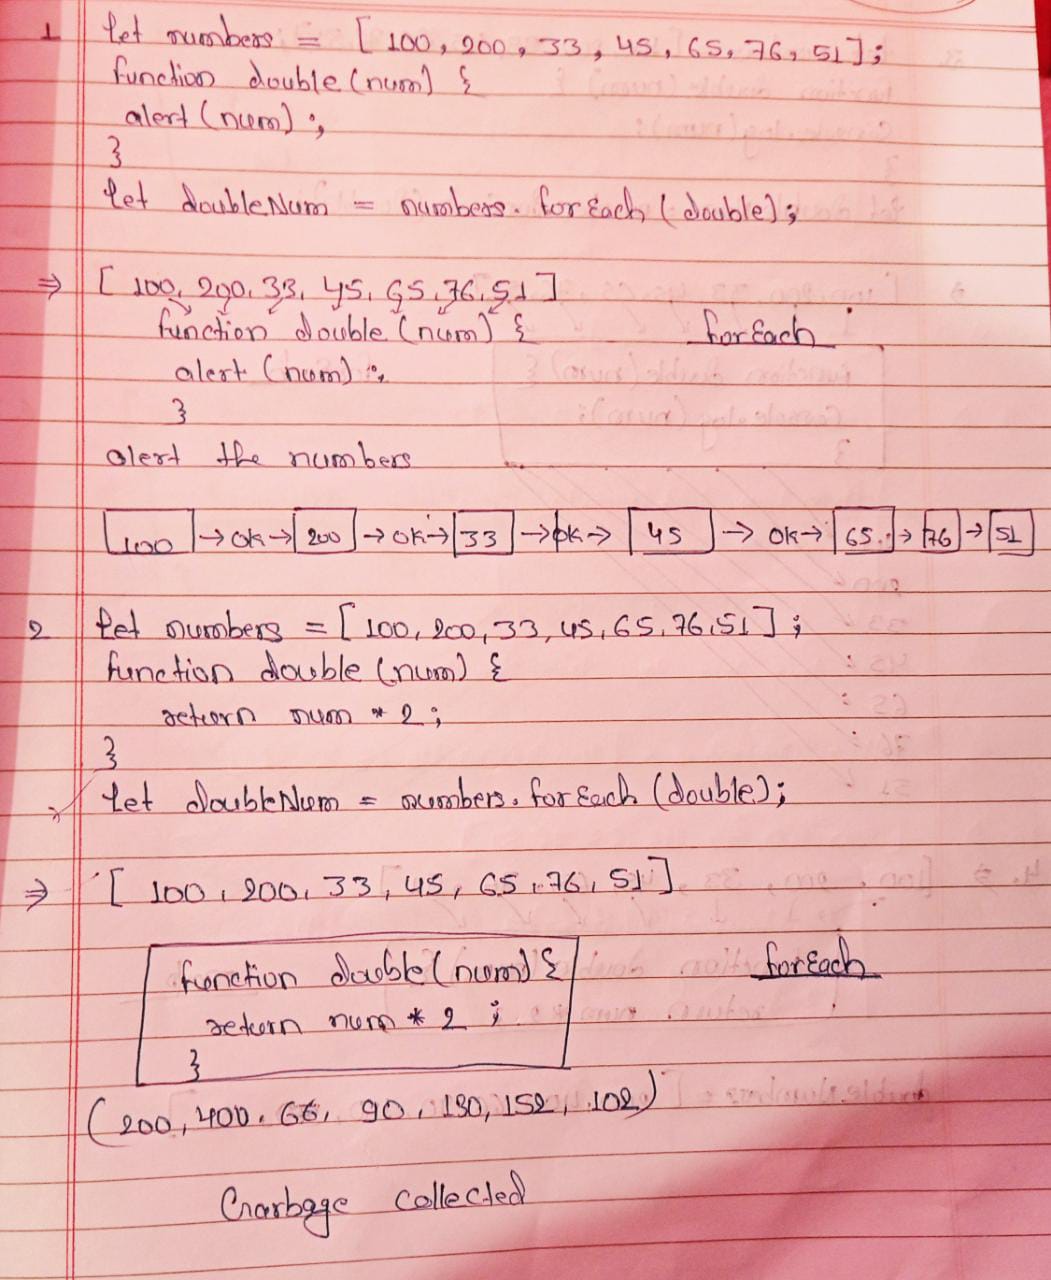 1 let numbers = [ 100, 200, 33, 45, 65, 76, 51 ];
function double (num) {
alert (num) ;
}
let doubleNum = numbers. forEach ( double) ;
⇒ [ 100, 200, 33, 45, 65, 76, 51 ]
function double (num) { forEach
alert (num) ;
}
alert the numbers
100 → ok → 200 → ok → 33 → ok → 45 → ok → 65 → 76 → 51
2 let numbers = [ 100, 200, 33, 45, 65, 76, 51 ] ;
function double (num) {
return num * 2 ;
}
let doubleNum = numbers. forEach (double) ;
⇒ [ 100, 200, 33, 45, 65, 76, 51 ]
function double (num) { forEach
return num * 2 ;
}
(200, 400, 66, 90, 130, 152, 102)
Garbage collected